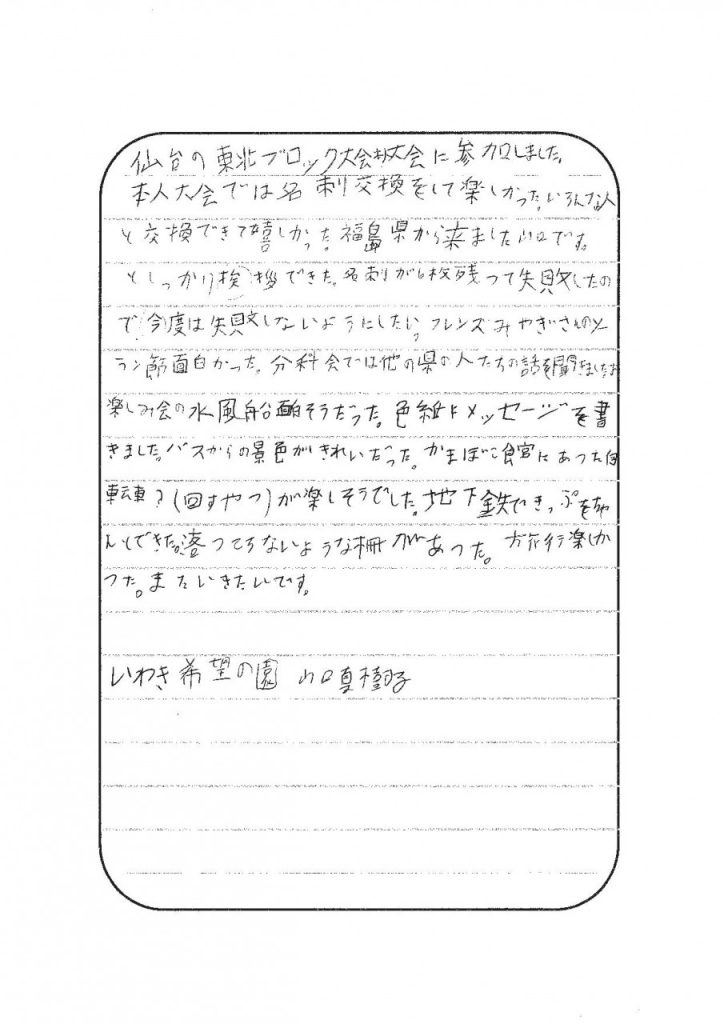 仙台の東北ブロック大会本大会に参加しました。
本人大会では名刺交換をして楽しかった。いろんな人
と交換できて嬉しかった。福島県から来ました山口です。
としっかり挨拶できた。名刺が 枚残って失敗したの
で今度は失敗しないようにしたい。フレンズみやぎさんのソー
ラン節面白かった。分科会では他の県の人たちの話を聞きましたお
楽しみ会の水風船面白そうだった。色紙にメッセージを書
きました。バスからの景色がきれいだった。かまぼこ食官にあった自
転車?(回すやつ)が楽しそうでした。地下鉄できっぷをちゃ
んとできた。落ってちないような柵があった。 旅行楽しか
った。またいきたいです。
いわき希望の園 山口真樹子